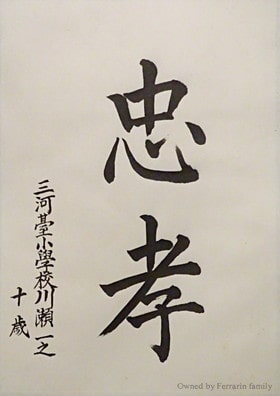 忠孝
三河臺小學校川瀬一之
十歳
Owned by Ferrarin family